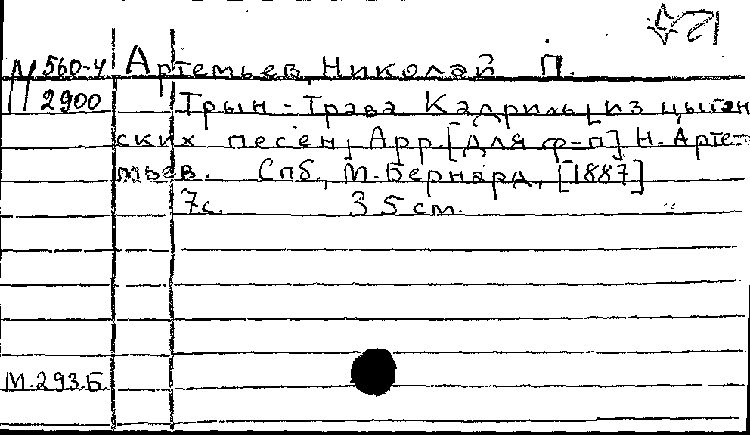 М 560-4 Артемьев, Николай П.
2900 Трын-Трава Кадриль [из цыган
ских песен, Арр. [для ф-п] Н. Арте-
мьев. Спб., М. Бернард, [1887]
7с. 35 см.
М.293.Б.